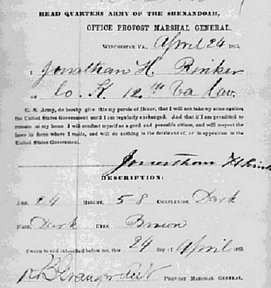 HEAD QUARTERS ARMY OF THE SHENANDOAH,
OFFICE PROVOST MARSHAL GENERAL.
WINCHESTER VA., April 24 1865.
I, Jonathan H Rinker
of Co. K 12th Va Cav.
C. S. Army, do hereby give this my parole of Honor, that I will not take up arms against
the United States Government until I am regularly exchanged. And that if I am permitted to
remain at my home I will conduct myself as a good and peaceable citizen, and will respect the
laws in force where I reside, and will do nothing to the detriment of, or in opposition to the
United States Government.
Jonathan H Rink
DESCRIPTION:
AGE: 24 HEIGHT, 5 8 COMPLEXION, Dark
HAIR, Dark EYES, Brown
Sworn to and subscribed before me, this 24 day of April 1865
PROVOST MARSHAL GENERAL.